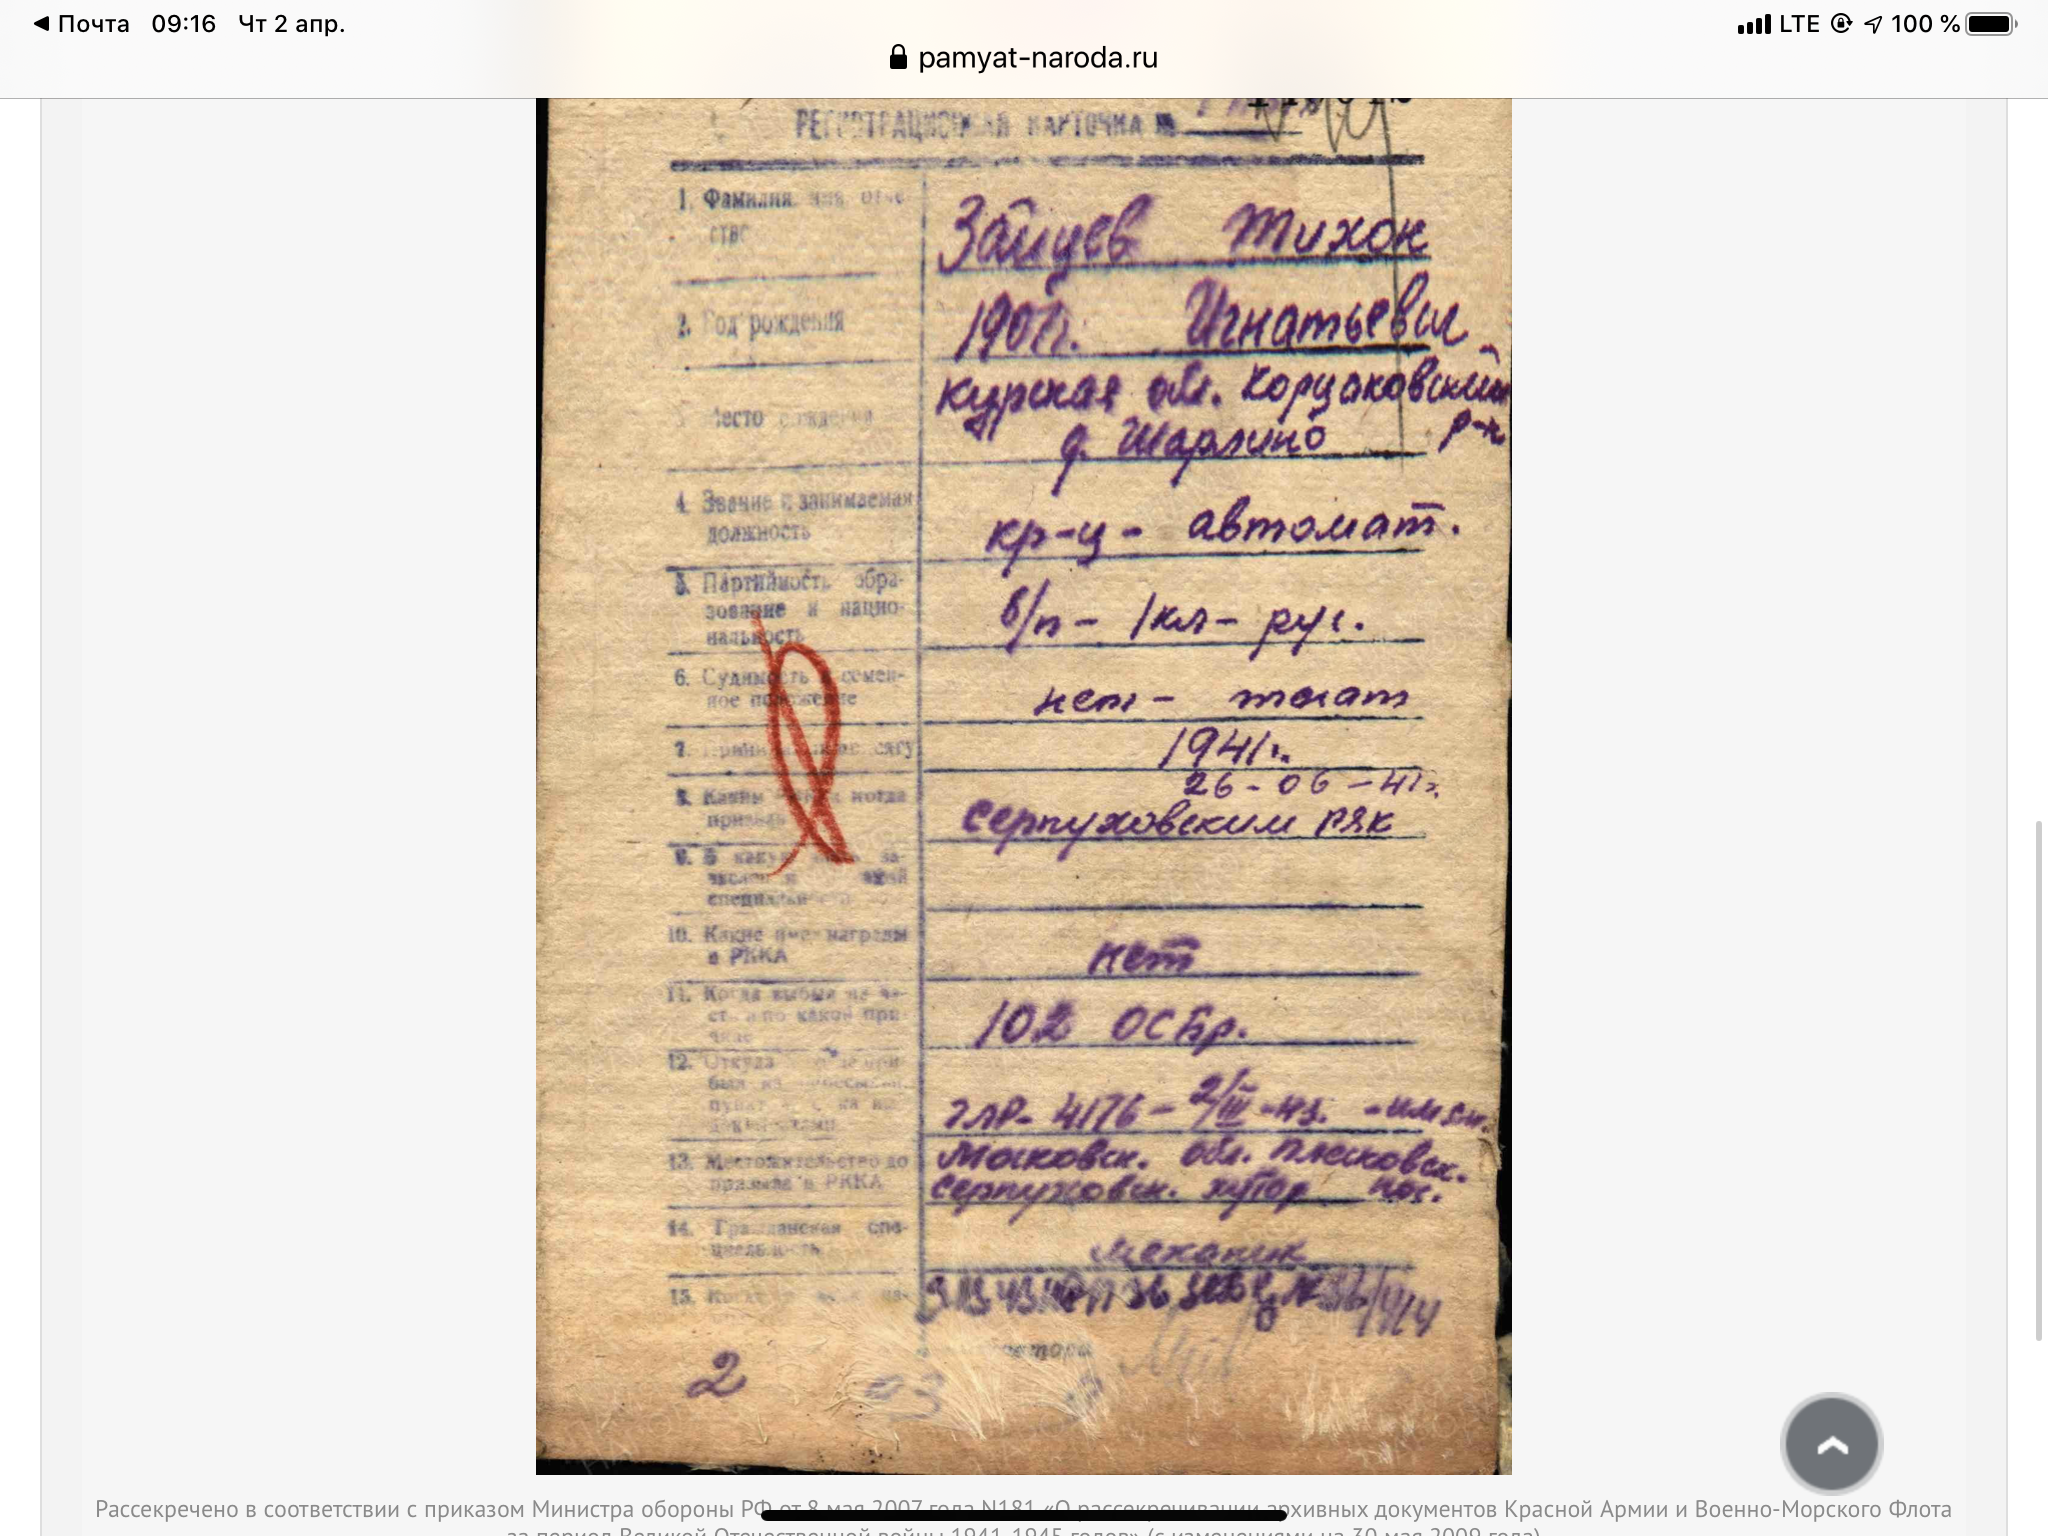 Почта 09:16 Чт 2 апр. LTE 100 %
pamyat-naroda.ru
РЕГИСТРАЦИОННАЯ КАРТОЧКА №
1. Фамилия имя отче-
ство
Зайцев Тихон
2. Год рождения
1907г. Игнатьевич
Место рождения
Курская обл. Корсаковский
р-н.
д. Шарлино
4. Звание и занимаемая
должность
кр-ц - автомат.
5. Партийность обра-
зование и нацио-
нальность
б/п - 1кл - рус.
6. Судимость и семей-
ное положение
нет - женат
7. Принимал присягу
1941г.
26-06-41г.
8. Каким и когда
призван
Серпуховским РВК
9. В какую часть за-
числен и какой
специальности
10. Какие имел награды
в РККА
нет
11. Когда выбыл из ча-
сти и по какой при-
чине
102 ОСБр.
12. Откуда
пункт
ГЛР- 4176 - 2/III -43.
13. Местожительство до
призыва в РККА
Московск. обл.
Серпуховск. хутор пос.
14. Гражданская спе-
циальность
механик
15. Когда
2
Рассекречено в соответствии с приказом Министра обороны РФ от 8 мая 2007 года N181 «О рассекречивании архивных документов Красной Армии и Военно-Морского Флота
за период Великой Отечественной войны 1941-1945 годов» (с изменениями на 30 мая 2009 года)